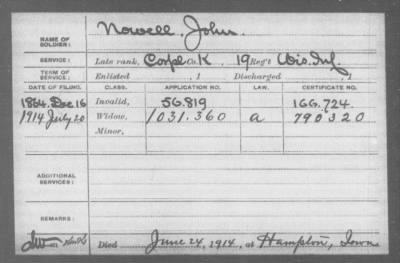 NAME OF SOLDIER: Nowell, John.
SERVICE: Late rank, Corpl Co. K, 19 Reg't Wis. Inf.
TERM OF SERVICE: Enlisted , 1 Discharged , 1
DATE OF FILING. CLASS. APPLICATION NO. LAW. CERTIFICATE NO.
1864. Dec 16 Invalid, 56.819 166.724.
1914 July 20 Widow, 1031.360 a 790320
Minor,
ADDITIONAL SERVICES:
REMARKS:
Died June 24, 1914, at Hampton, Iowa